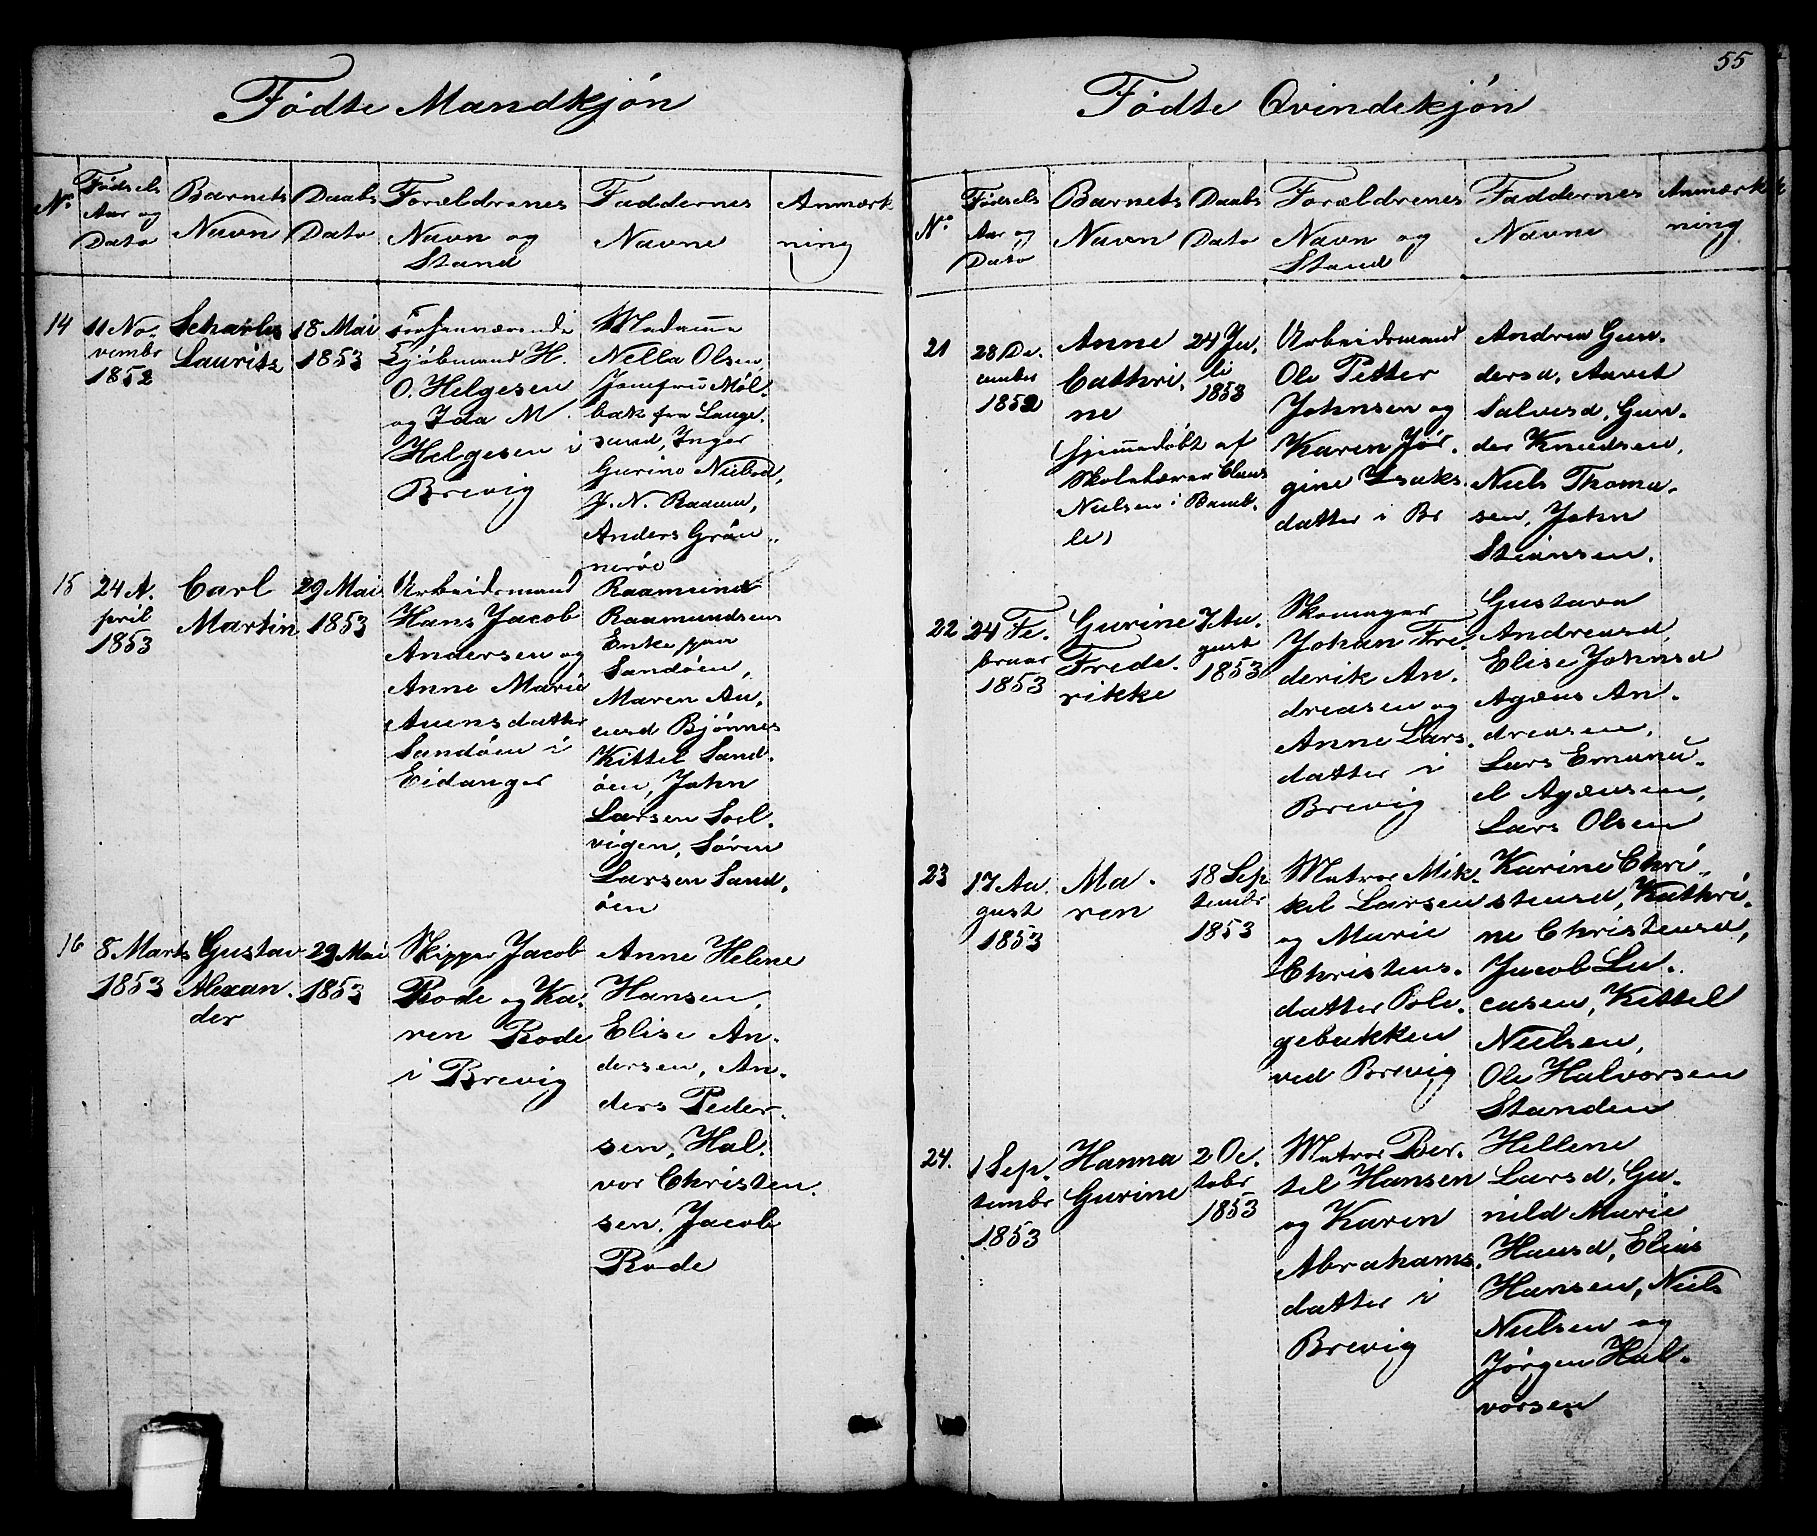 Fødte Mandkjön
No
Fødsels
Aar og
Dato
Barnets
Navn
Daabs
Dato
Forældrenes
Navn og
Stand
Faddernes
Navne
Anmærk
ning
14
11 No-
vembr
1852
Scharles
Lauritz
18 Mai
1853
H.
O. Helgesen
og Ida M.
Helgesen i
Brevig
Madame
Nella Olsen,
Jomfru Møl-
bak fra Lange-
sund, Inger
Gurine Nielsd,
J. N. Raaum,
Anders Grön-
neröe
15
24 A-
pril
1853
Carl
Martin
29 Mai
1853
Arbeidsmand
Hans Jacob
Andersen og
Anne Marie
Auensdatter
Sandöen i
Eidanger
Raamund
Raamundsens
Enke paa
Sandöen,
Maren An-
Bjönnes
Kittel Sand-
öen, John
Larsen Soel-
vigen, Sören
Larsen Sand-
öen
16
8 Marts
1853
Gustav
Alexan-
der
29 Mai
1853
Skipper Jacob
Rode og Ka-
ren Rode
i Brevig
Anne Helene
Hansen,
Elise An-
dersen, An-
ders Peder-
sen, Hal-
vor Christen-
sen, Jacob
Rode
55
Fødte Qvindekjön
No
Fødsels
Aar og
Dato
Barnets
Navn
Daabs
Dato
Forældrenes
Navn og
Stand
Faddernes
Navne
Anmærk
ning
21
28 De-
cember
1852
Anne
Cathri-
ne
(hjemmedöbt af
Skolelærer Claus
Nielsen i Bamb-
le)
24 Ju-
li
1853
Arbeidsmand
Ole Petter
Johnsen og
Karen Jör-
gine Isaks-
datter i Br
Andrea Gun-
dersd, Aaret
Salvesd, Gun-
der Knudsen,
Niels Thoma-
sen, John
Stiansen.
22
24 Fe-
bruar
1853
Gurine
Frede-
rikke
7 Au-
gust
1853
Skomager
Johan Fre-
derik An-
dreasen og
Anne Lars-
datter i
Brevig
Gustava
Andreasd,
Elise Johnsd
Agæus An-
dreasen,
Lars Emanu-
el Agæusen,
Lars Olsen
23
17 Au-
gust
1853
Ma-
ren
18 Sep
tembr
1853
Matros Mik-
kel Larsen
og Marie
Christens-
datter Bole-
gebakken
ved Brevig
Karine Chri-
stensd, Kathri-
ne Christensd,
Jacob Lu-
casen, Kittel
Nielsen,
Ole Halvorsen
Stranden
24.
1 Sep-
tembr
1853
Hanna
Gurine
2 Oc-
tobr
1853
Matros Ber-
tel Hansen
og Karen
Abrahams-
datter i
Brevig
Hellene
Larsd, Gu-
nild Marie
Hansd, Elias
Hansen, Niels
Nielsen og
Jörgen Hal-
vorsen